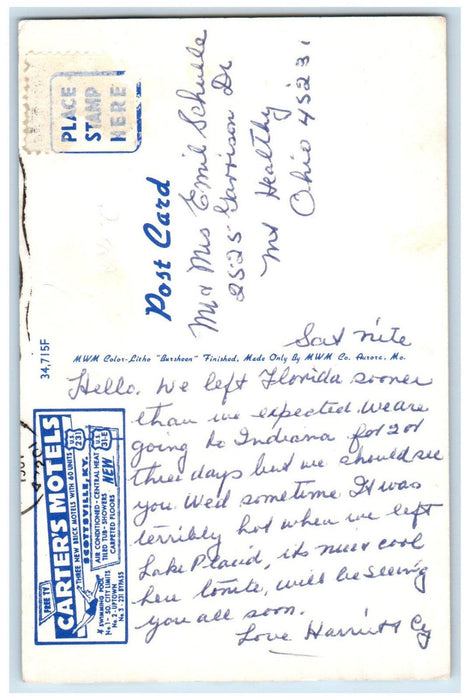 PLACE
STAMP
HERE
Post Card
Mr & Mrs Emil Schulle
2525 Garrison Dr
Mt Healthy
Ohio 45231
34,715F
MWM Color-Litho "Bursheen" Finished, Made Only By MWM Co. Aurora, Mo.
FREE TV
CARTER'S MOTELS
THREE NEW BRICK MOTELS WITH 60 UNITS
U.S. 231
SCOTTSVILLE, KY.
U.S. 31-E
AIR CONDITIONED - CENTRAL HEAT
TILED TUB - SHOWERS
CARPETED FLOORS
NEW
SWIMMING POOL
No. 1 - SO. CITY LIMITS
No. 2 - UPTOWN
No. 3 - 231 BYPASS
Sat nite
Hello. We left Florida sooner
than we expected. We are
going to Indiana for 2 or
three days but we should see
you Wed sometime It was
terribly hot when we left
Lake Placid, its nice & cool
here tonite, will be seeing
you all soon.
Love Harriett & Cy